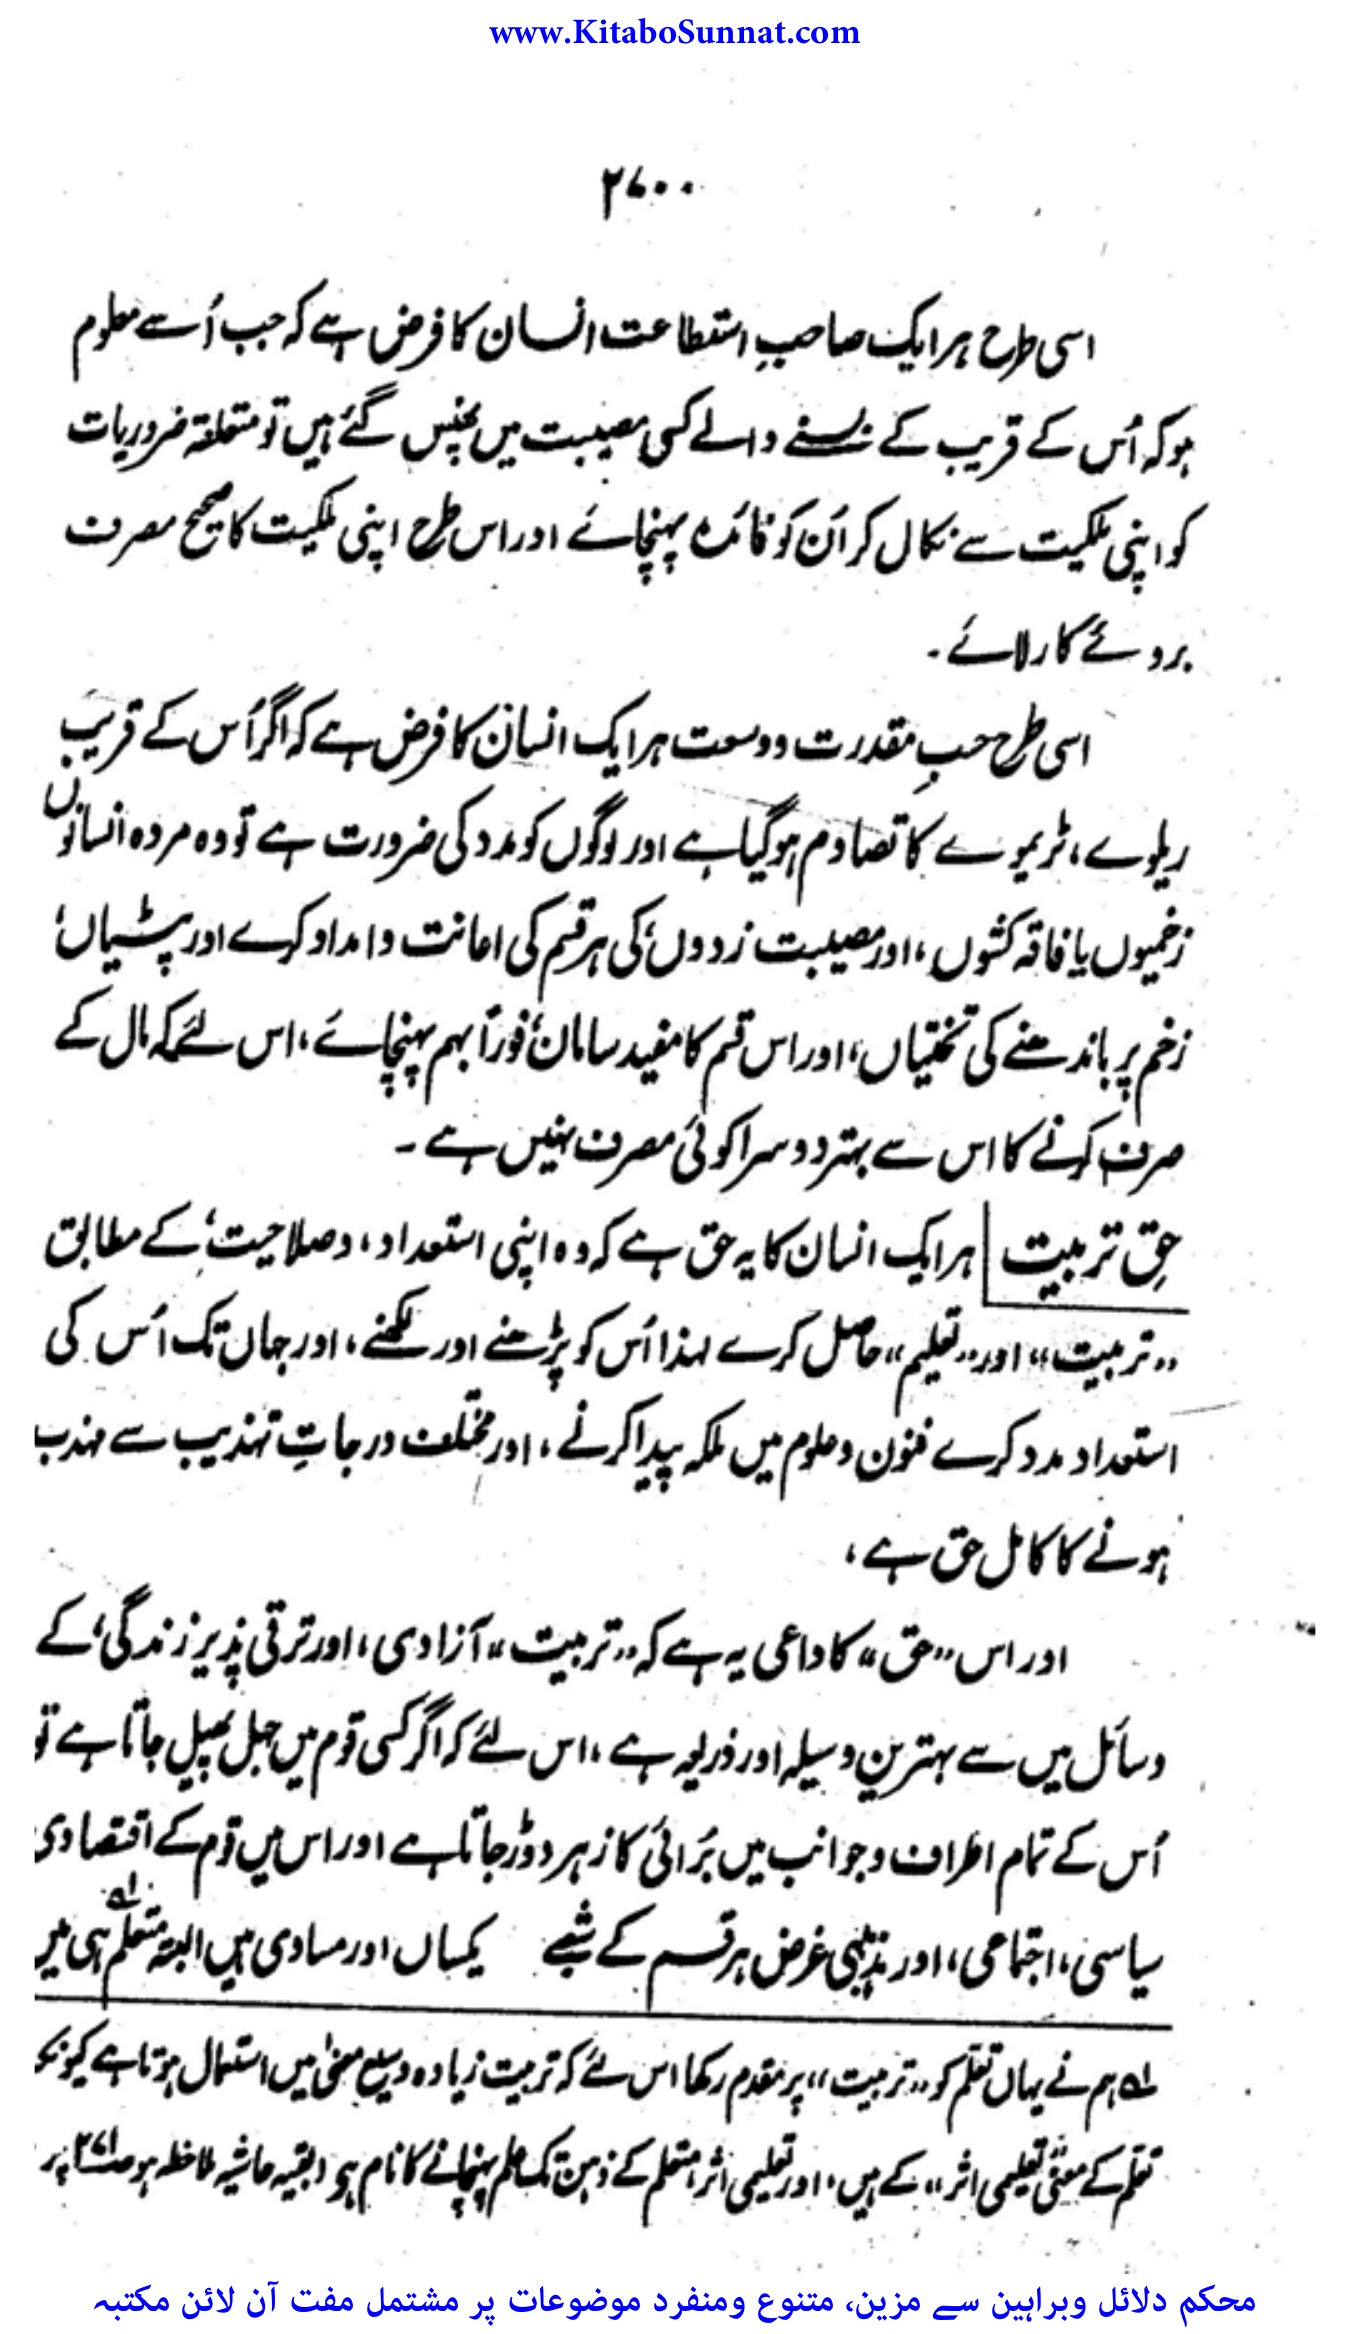 www.KitaboSunnat.com
۲۷۰۰
اسی طرح ہر ایک صاحبِ استطاعت انسان کا فرض ہے کہ جب اُسے معلوم
ہو کہ اُس کے قریب کے بسنے والے کسی مصیبت میں پھنس گئے ہیں تو متعلقہ ضروریات
کو اپنی ملکیت سے نکال کر اُن کو فائدہ پہنچائے اور اس طرح اپنی ملکیت کا صحیح مصرف
بروئے کار لائے۔
اسی طرح حسبِ مقدرت و وسعت ہر ایک انسان کا فرض ہے کہ اگر اُس کے قریب
ریلوے، ٹریموے کا تصادم ہو گیا ہے اور لوگوں کو مدد کی ضرورت ہے تو وہ مردہ انسانوں
زخمیوں یا فاقہ کشوں، اور مصیبت زدوں، کی ہر قسم کی اعانت و امداد کرے اور پٹیاں،
زخم پر باندھنے کی تختیاں، اور اس قسم کا مفید سامان، فوراً بہم پہنچائے، اس لئے کہ مال کے
صرف کرنے کا اس سے بہتر دوسرا کوئی مصرف نہیں ہے۔
حقِ تربیت ہر ایک انسان کا یہ حق ہے کہ وہ اپنی استعداد، و صلاحیت، کے مطابق
”تربیت“ اور ”تعلیم“ حاصل کرے لہذا اُس کو پڑھنے اور لکھنے، اور جہاں تک اُس کی
استعداد مدد کرے فنون و علوم میں ملکہ پیدا کرنے، اور مختلف درجاتِ تہذیب سے مہذب
ہونے کا کامل حق ہے،
اور اس ”حق“ کا داعی یہ ہے کہ ”تربیت“ آزادی، اور ترقی پذیر زندگی، کے
وسائل میں سے بہترین وسیلہ اور ذریعہ ہے، اس لئے کہ اگر کسی قوم میں جہل پھیل جاتا ہے تو
اُس کے تمام اطراف و جوانب میں بُرائی کا زہر دوڑ جاتا ہے اور اس میں قوم کے اقتصادی
سیاسی، اجتماعی، اور مذہبی غرض ہر قسم کے شعبے یکساں اور مساوی ہیں البتہ متعلم ہی میں
لہ ہم نے یہاں تعلّم کو ”تربیت“ پر مقدم رکھا اس لئے کہ تربیت زیادہ وسیع معنیٰ میں استعمال ہوتا ہے کیونکہ
تعلّم کے معنیٰ ”تعلیمی اثر“ کے ہیں، اور تعلیمی اثر، متعلم کے ذہن تک علم پہنچانے کا نام ہی (بقیہ حاشیہ ملاحظہ ہو ص۲۷۱ پر
محکم دلائل وبراہین سے مزین، متنوع ومنفرد موضوعات پر مشتمل مفت آن لائن مکتبہ